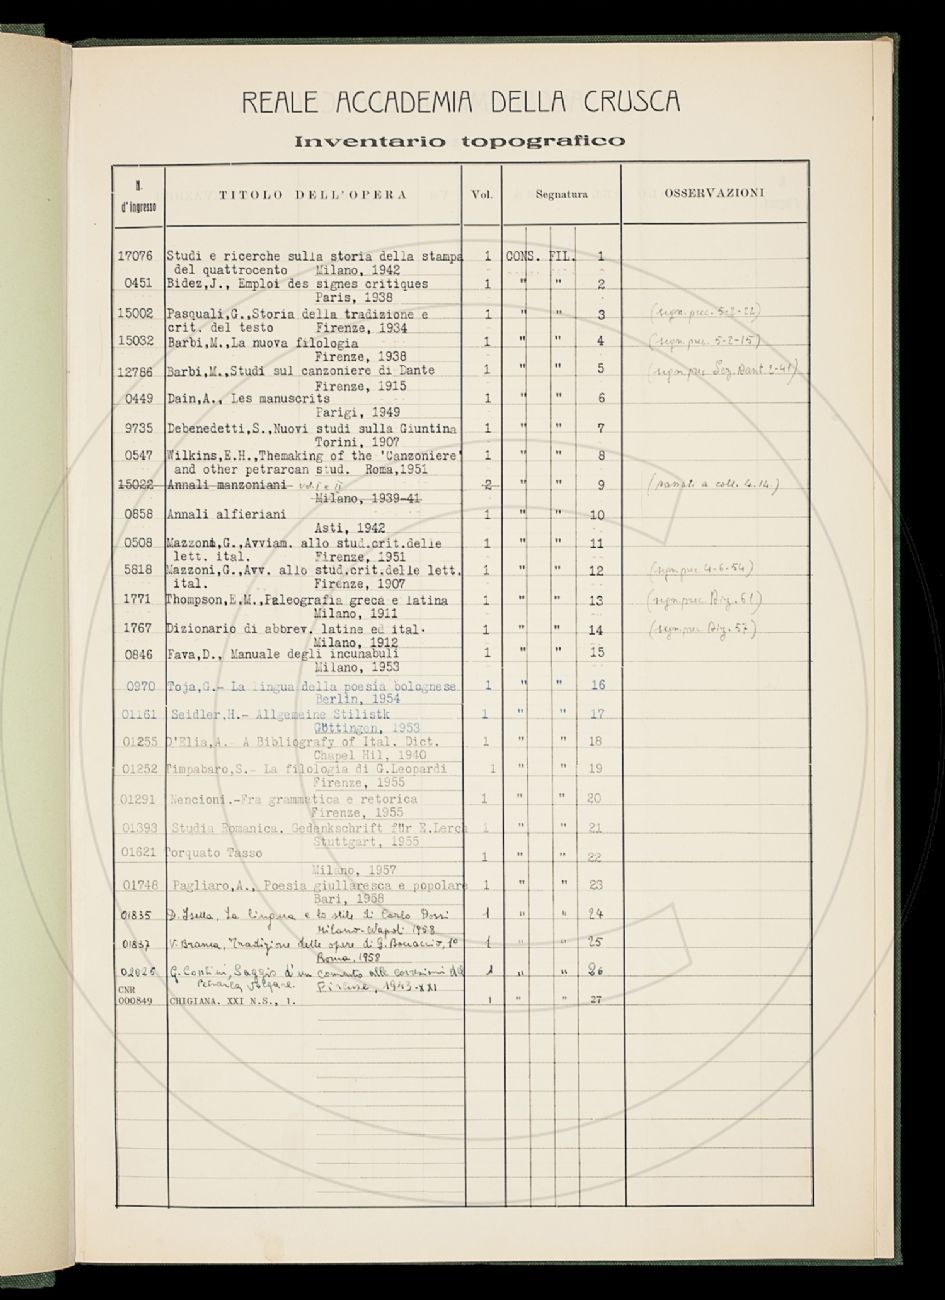 REALE ACCADEMIA DELLA CRUSCA
Inventario topografico
N. d'ingresso TITOLO DELL'OPERA Vol. Segnatura OSSERVAZIONI
17076 Studi e ricerche sulla storia della stampa 1 CONS. FIL. 1
del quattrocento Milano, 1942
0451 Bidez,J., Emploi des signes critiques 1 " " 2
Paris, 1938
15002 Pasquali,G.,Storia della tradizione e 1 " " 3 (segn. prec. 5-2-22)
crit. del testo Firenze, 1934
15032 Barbi,M.,La nuova filologia 1 " " 4 (segn. prec. 5-2-15)
Firenze, 1938
12786 Barbi,M.,Studi sul canzoniere di Dante 1 " " 5 (segn. prec. Sez. Dant. 2-41)
Firenze, 1915
0449 Dain,A., Les manuscrits 1 " " 6
Parigi, 1949
9735 Debenedetti,S.,Nuovi studi sulla Giuntina 1 " " 7
Torini, 1907
0547 Wilkins,E.H.,Themaking of the 'Canzoniere' 1 " " 8
and other petrarcan stud. Roma,1951
15022 Annali manzoniani vol. I e II 2 " " 9 (passati a coll. 4.14.)
Milano, 1939-41
0858 Annali alfieriani 1 " " 10
Asti, 1942
0508 Mazzoni,G.,Avviam. allo stud.crit.delle 1 " " 11
lett. ital. Firenze, 1951
5818 Mazzoni,G.,Avv. allo stud.crit.delle lett. 1 " " 12 (segn. prec. 4-6-54)
ital. Firenze, 1907
1771 Thompson,E.M.,Paleografia greca e latina 1 " " 13 (segn. prec. Diz. 61)
Milano, 1911
1767 Dizionario di abbrev. latine ed ital. 1 " " 14 (segn. prec. Diz. 57)
Milano, 1912
0846 Fava,D., Manuale degli incunabuli 1 " " 15
Milano, 1953
0970 Toja,G.- La lingua della poesia bolognese 1 " " 16
Berlin, 1954
01161 Seidler,H.- Allgemeine Stilistk 1 " " 17
Göttingen, 1953
01255 D'Elia,A.- A Bibliografy of Ital. Dict. 1 " " 18
Chapel Hil, 1940
01252 Timpabaro,S.- La filologia di G.Leopardi 1 " " 19
Firenze, 1955
01291 Nencioni.-Fra grammatica e retorica 1 " " 20
Firenze, 1955
01393 Studia Romanica. Gedenkschrift für E.Lerch 1 " " 21
Stuttgart, 1955
01621 Torquato Tasso 1 " " 22
Milano, 1957
01748 Pagliaro,A., Poesia giullaresca e popolare 1 " " 23
Bari, 1958
01835 D. Isella, La lingua e lo stile di Carlo Dossi 1 " " 24
Milano-Napoli 1958
01837 V. Branca, Tradizione delle opere di G. Boccaccio, 1° 1 " " 25
Roma, 1958
02026 G. Contini, Saggio d'un commento alle correzioni del 1 " " 26
Petrarca volgare. Firenze, 1943-XXI
CNR
000849 CHIGIANA. XXI N.S., 1. 1 " " 27